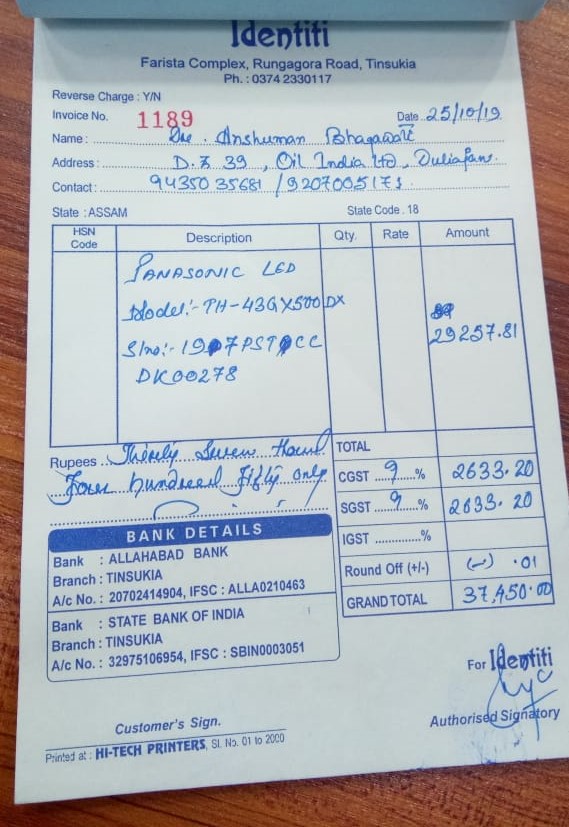 Identiti
Farista Complex, Rungagora Road, Tinsukia
Ph. : 0374 2330117
Reverse Charge : Y/N
Invoice No. 1189 Date 25/10/19
Name : Anshuman Bhagawati
Address : D.Z 39, Oil India Ltd, Duliajan.
Contact : 94350 35681 / 9207005171
State : ASSAM State Code. 18
HSN Code Description Qty. Rate Amount
PANASONIC LED
Model:- TH-43GX500DX
29257.81
Slno:-
DK00278
Rupees Thirty Seven Thous
Four hundred fifty only
TOTAL
CGST 9 % 2633.20
SGST 9 % 2633.20
IGST %
Round Off (+/-) (-) .01
GRAND TOTAL 37,450.00
BANK DETAILS
Bank : ALLAHABAD BANK
Branch : TINSUKIA
A/c No. : 20702414904, IFSC : ALLA0210463
Bank : STATE BANK OF INDIA
Branch : TINSUKIA
A/c No. : 32975106954, IFSC : SBIN0003051
For Identiti
Authorised Signatory
Customer's Sign.
Printed at : HI-TECH PRINTERS, Sl. No. 01 to 2000